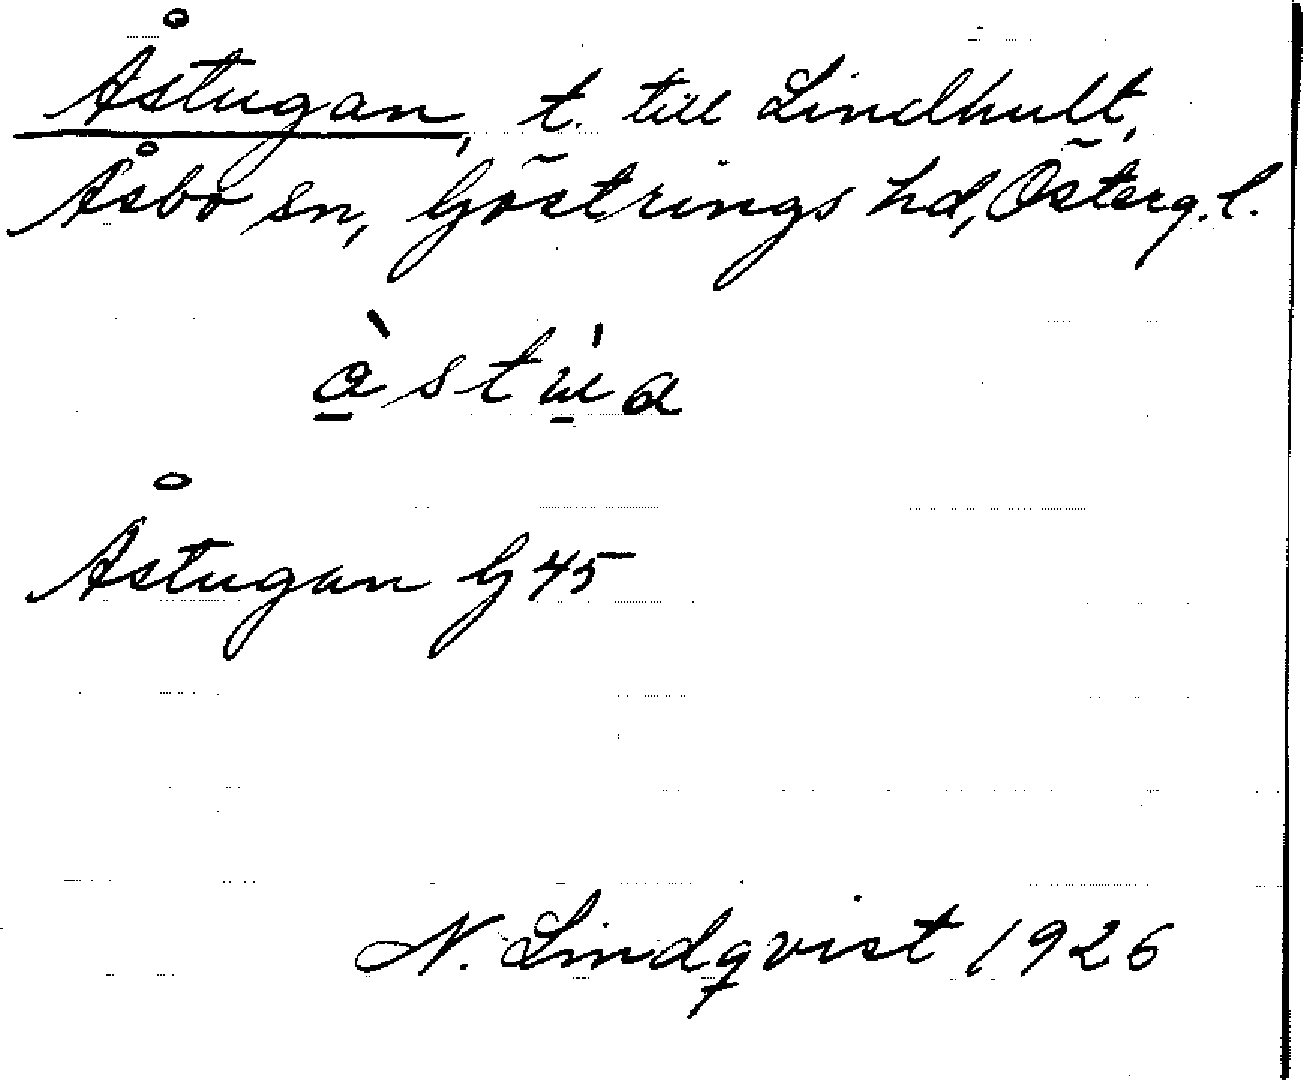 Åstugan, t. till Lindhult,
Åsbo sn, Göstrings hd, Österg. l.
Åstugan G 45
N. Lindqvist 1926